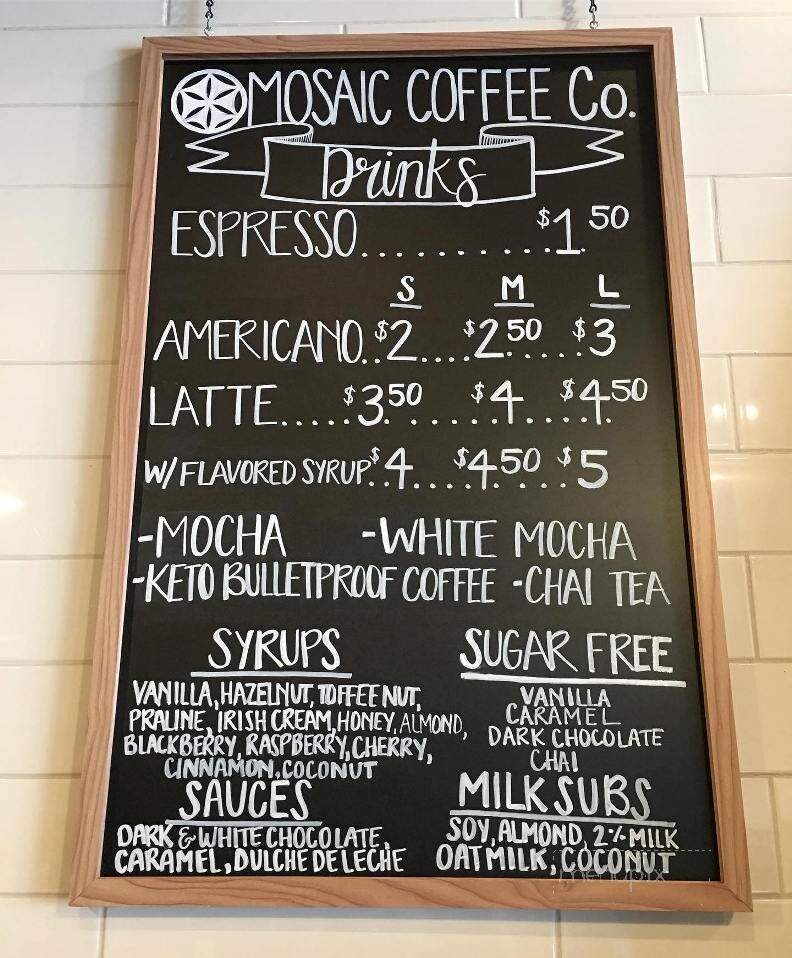 MOSAIC COFFEE Co.
Drinks
ESPRESSO.......... $1.50
S M L
AMERICANO..$2....$2.50.....$3
LATTE.....$3.50......$4....$4.50
W/ FLAVORED SYRUP.$4....$4.50...$5
-MOCHA -WHITE MOCHA
-KETO BULLETPROOF COFFEE -CHAI TEA
SYRUPS
VANILLA, HAZELNUT, TOFFEE NUT,
PRALINE, IRISH CREAM, HONEY, ALMOND,
BLACKBERRY, RASPBERRY, CHERRY,
CINNAMON, COCONUT
SAUCES
DARK & WHITE CHOCOLATE,
CARAMEL, DULCHE DE LECHE
SUGAR FREE
VANILLA
CARAMEL
DARK CHOCOLATE
CHAI
MILK SUBS
SOY, ALMOND, 2% MILK
OAT MILK, COCONUT
menupix